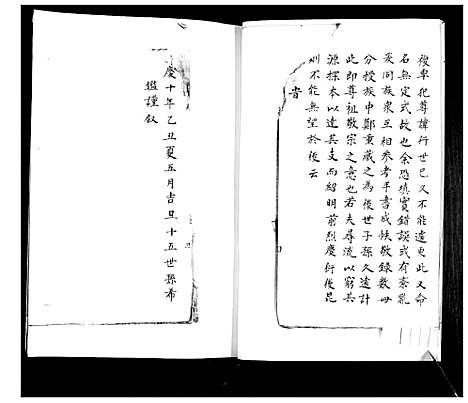 複卑犯尊諱行世已又不能遽更此又命
名無定式故也余恐填實錯誤或有紊亂
爰同族衆互相參考手書成帙敬錄數冊
分授族中鄭重藏之為後世子孫久遠計
此即尊祖敬宗之意也若夫尋流以窮其
源探本以達其支而紹明前烈慶衍後昆
則不能無望於後云
慶十年乙丑夏五月吉旦十五世孫希
謹叙